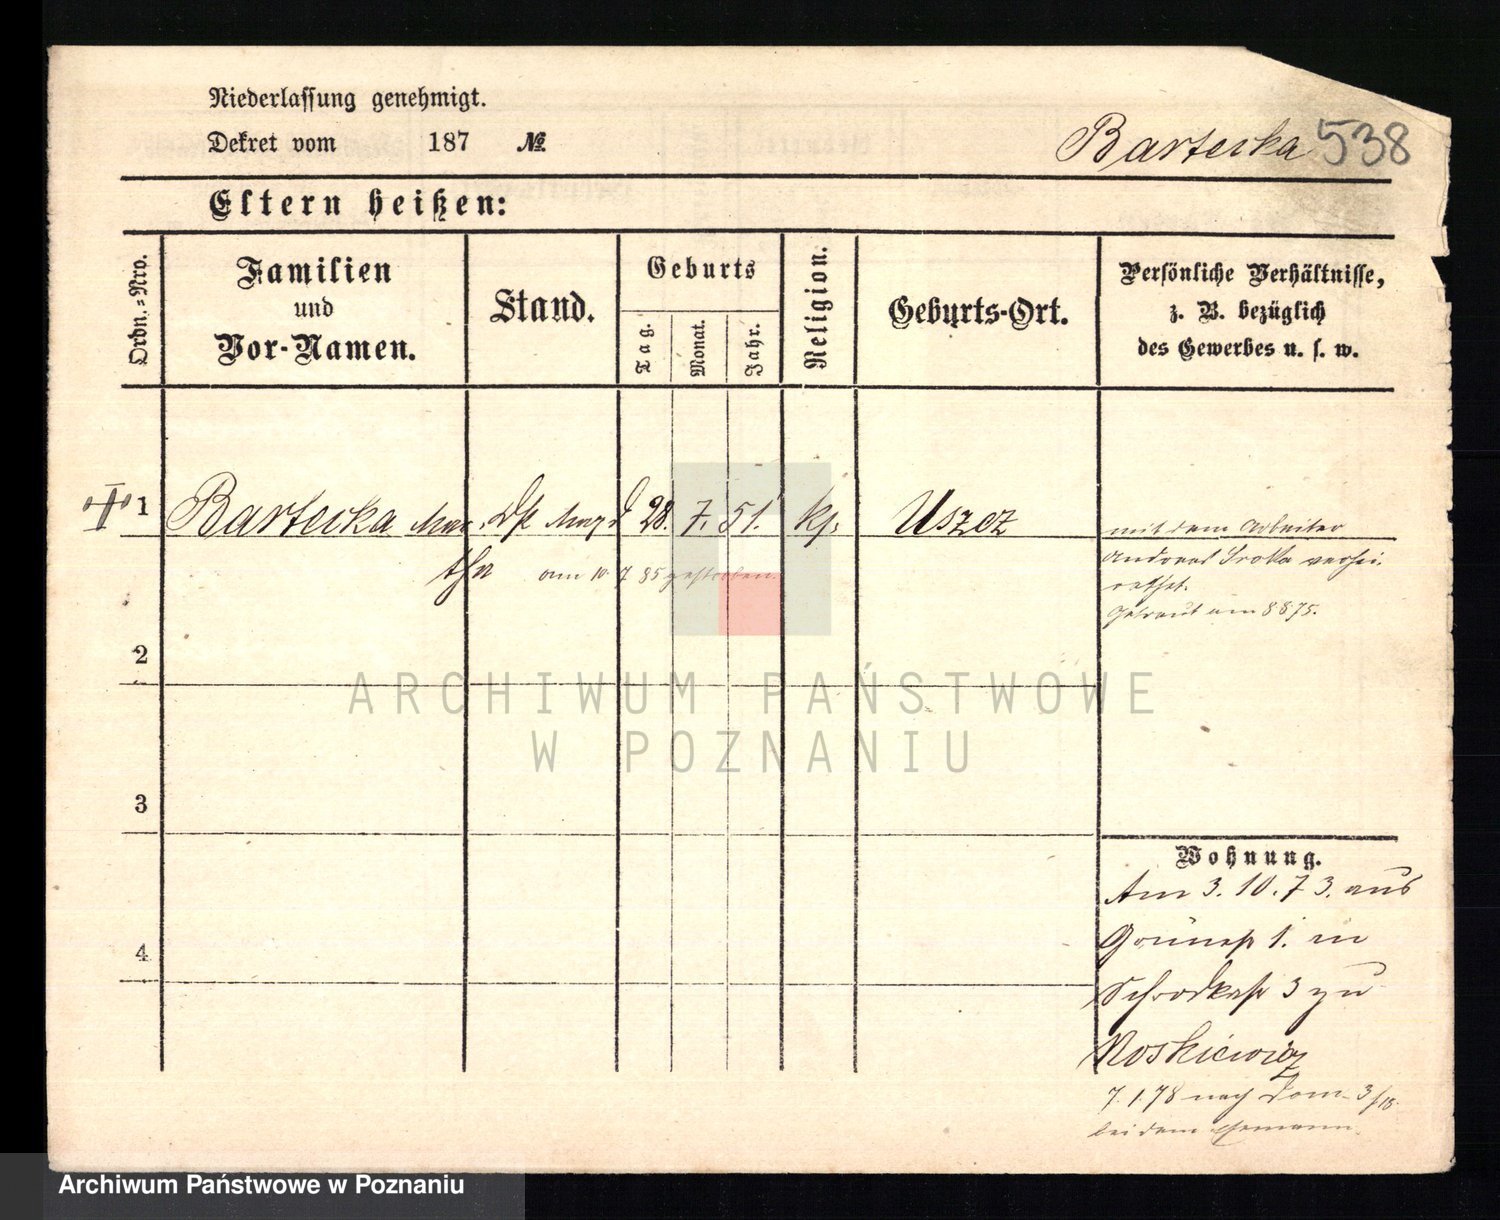 Niederlassung genehmigt.
Dekret vom 187 №
Bartecka 538
Eltern heißen:
Ordn.-Nro.
Familien
und
Vor-Namen.
Stand.
Geburts
Tag.
Monat.
Jahr.
Religion.
Geburts-Ort.
Persönliche Verhältnisse,
z. B. bezüglich
des Gewerbes u. s. w.
1 Bartecka Mar- 28. 7. 51. kf. Uszcz mit dem Arbeiter
tha am 10 7 85 gestorben.
Andreas Sroka verhei-
rathet.
Getraut am 8 8 75.
2
3
4
Wohnung.
Am 3. 10. 73. aus
Grünestr 1. in
Schrodkastr 3 zu
Roskiewicz
7. 1. 78 nach Dom- 3/
bei dem Ehemann.
ARCHIWUM PAŃSTWOWE
W POZNANIU
Archiwum Państwowe w Poznaniu